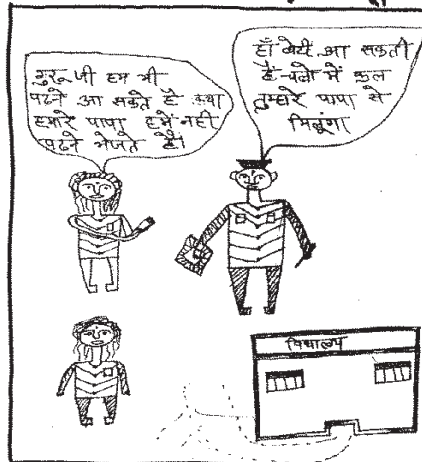 गुरू जी हम भी
पढने आ सकते है क्या
हमारे पापा हमे नही
पढने भेजते है।
हाँ बेटी आ सकती
है-चलो में कल
तुम्हारे पापा से
मिलूंगा
विद्यालय